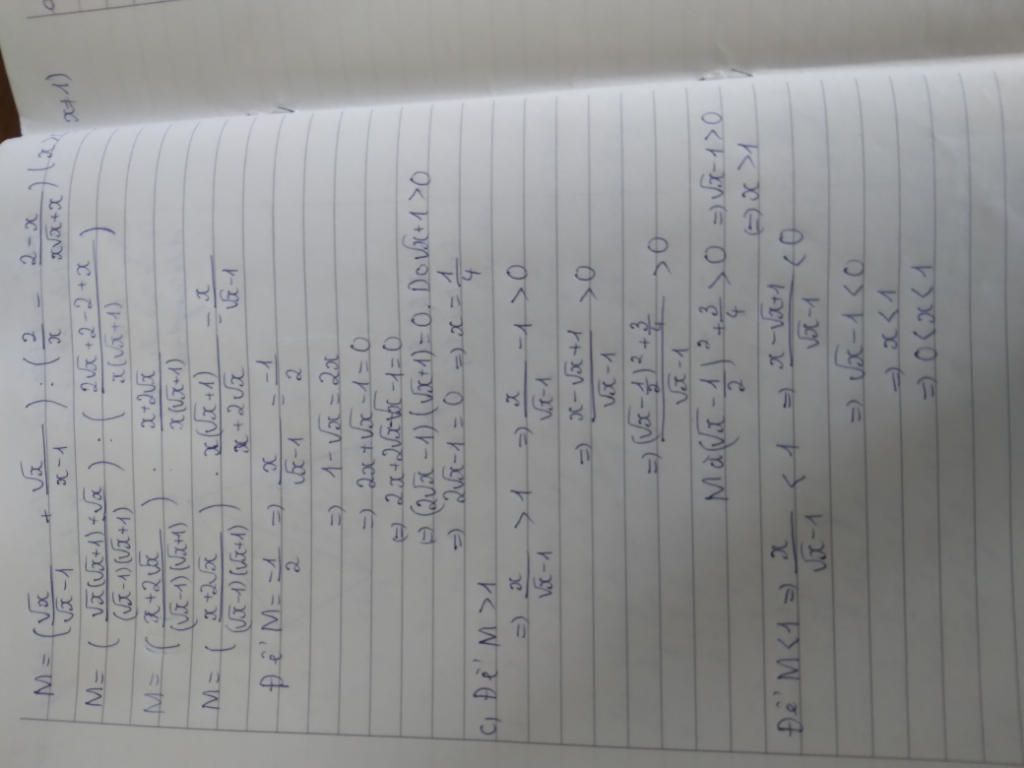 M = (√x/(√x-1) + √x/(x-1)) : (2/x - (2-x)/(x√x+x)) (x> x≠1)
M = ((√x(√x+1)+√x)/((√x-1)(√x+1))) : ((2√x+2-2+x)/(x(√x+1)))
M = ((x+2√x)/((√x-1)(√x+1))) : (x+2√x)/(x(√x+1))
M = ((x+2√x)/((√x-1)(√x+1))) . (x(√x+1))/(x+2√x) = x/(√x-1)
Để M = -1/2 => x/(√x-1) = -1/2
=> 1-√x = 2x
=> 2x+√x-1=0
(=> 2x+2√x-√x-1=0
=> (2√x-1)(√x+1)=0. Do √x+1>0
=> 2√x-1=0 => x=1/4
c, Để M>1
=> x/(√x-1) >1 => x/(√x-1) -1>0
=> (x-√x+1)/(√x-1) >0
=> ((√x-1/2)²+3/4)/(√x-1) >0
Mà (√x-1/2)²+3/4>0 => √x-1>0
(=> x>1
Để M<1 => x/(√x-1) <1 => (x-√x+1)/(√x-1) <0
=> √x-1<0
=> x<1
=> 0<x<1